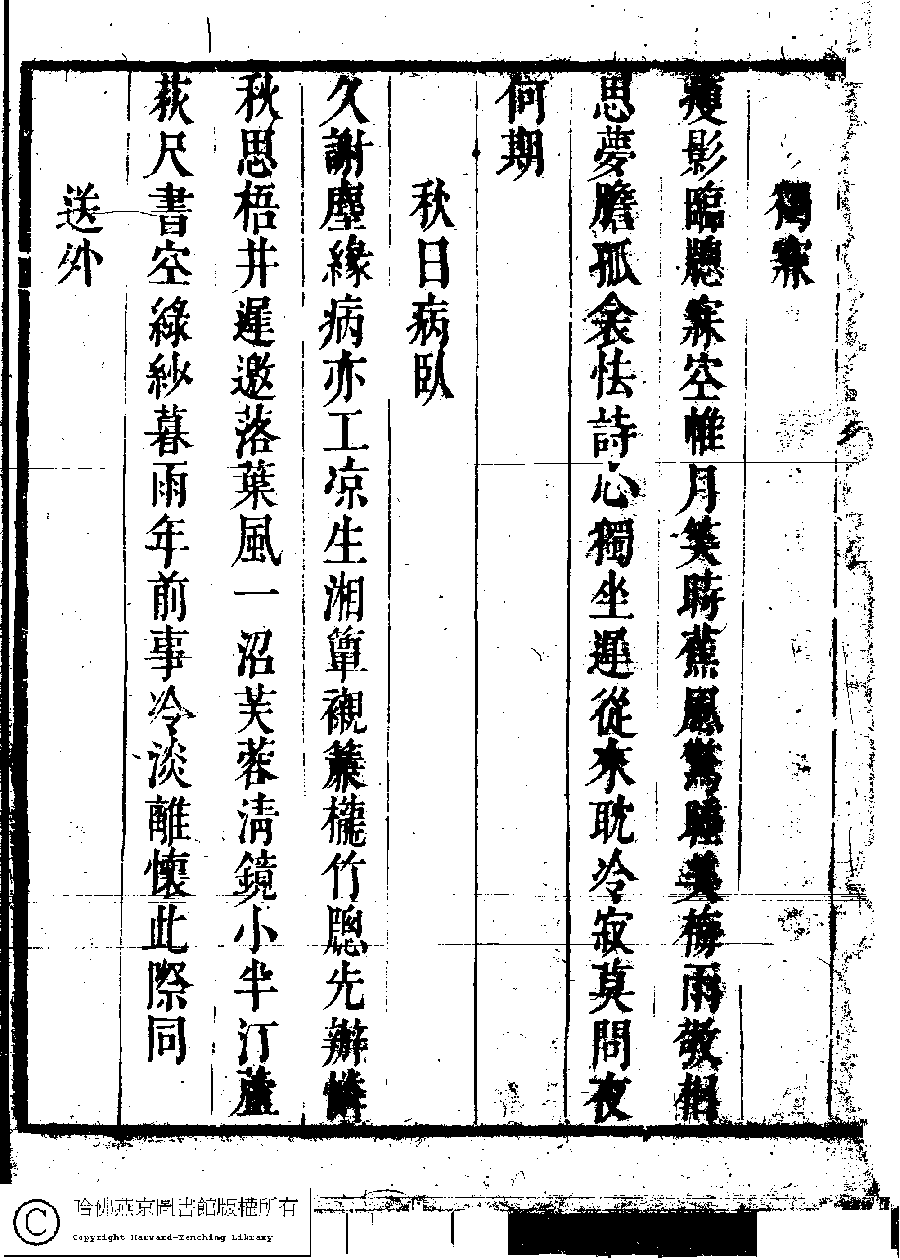 獨寐
瘦影臨牕寐空帷月笑時蕉風驚睡美梅雨教相
思夢膽孤衾怯詩心獨坐遲從來耽冷寂莫問夜
何期
秋日病臥
久謝塵緣病亦工凉生湘簟襯簾櫳竹牕先辦
秋思梧井遲邀落葉風一沼芙蓉清鏡小半汀蘆
荻尺書空綠紗暮雨年前事冷淡離懷此際同
送外
哈佛燕京圖書館版權所有
Copyright Harvard-Yenching Library